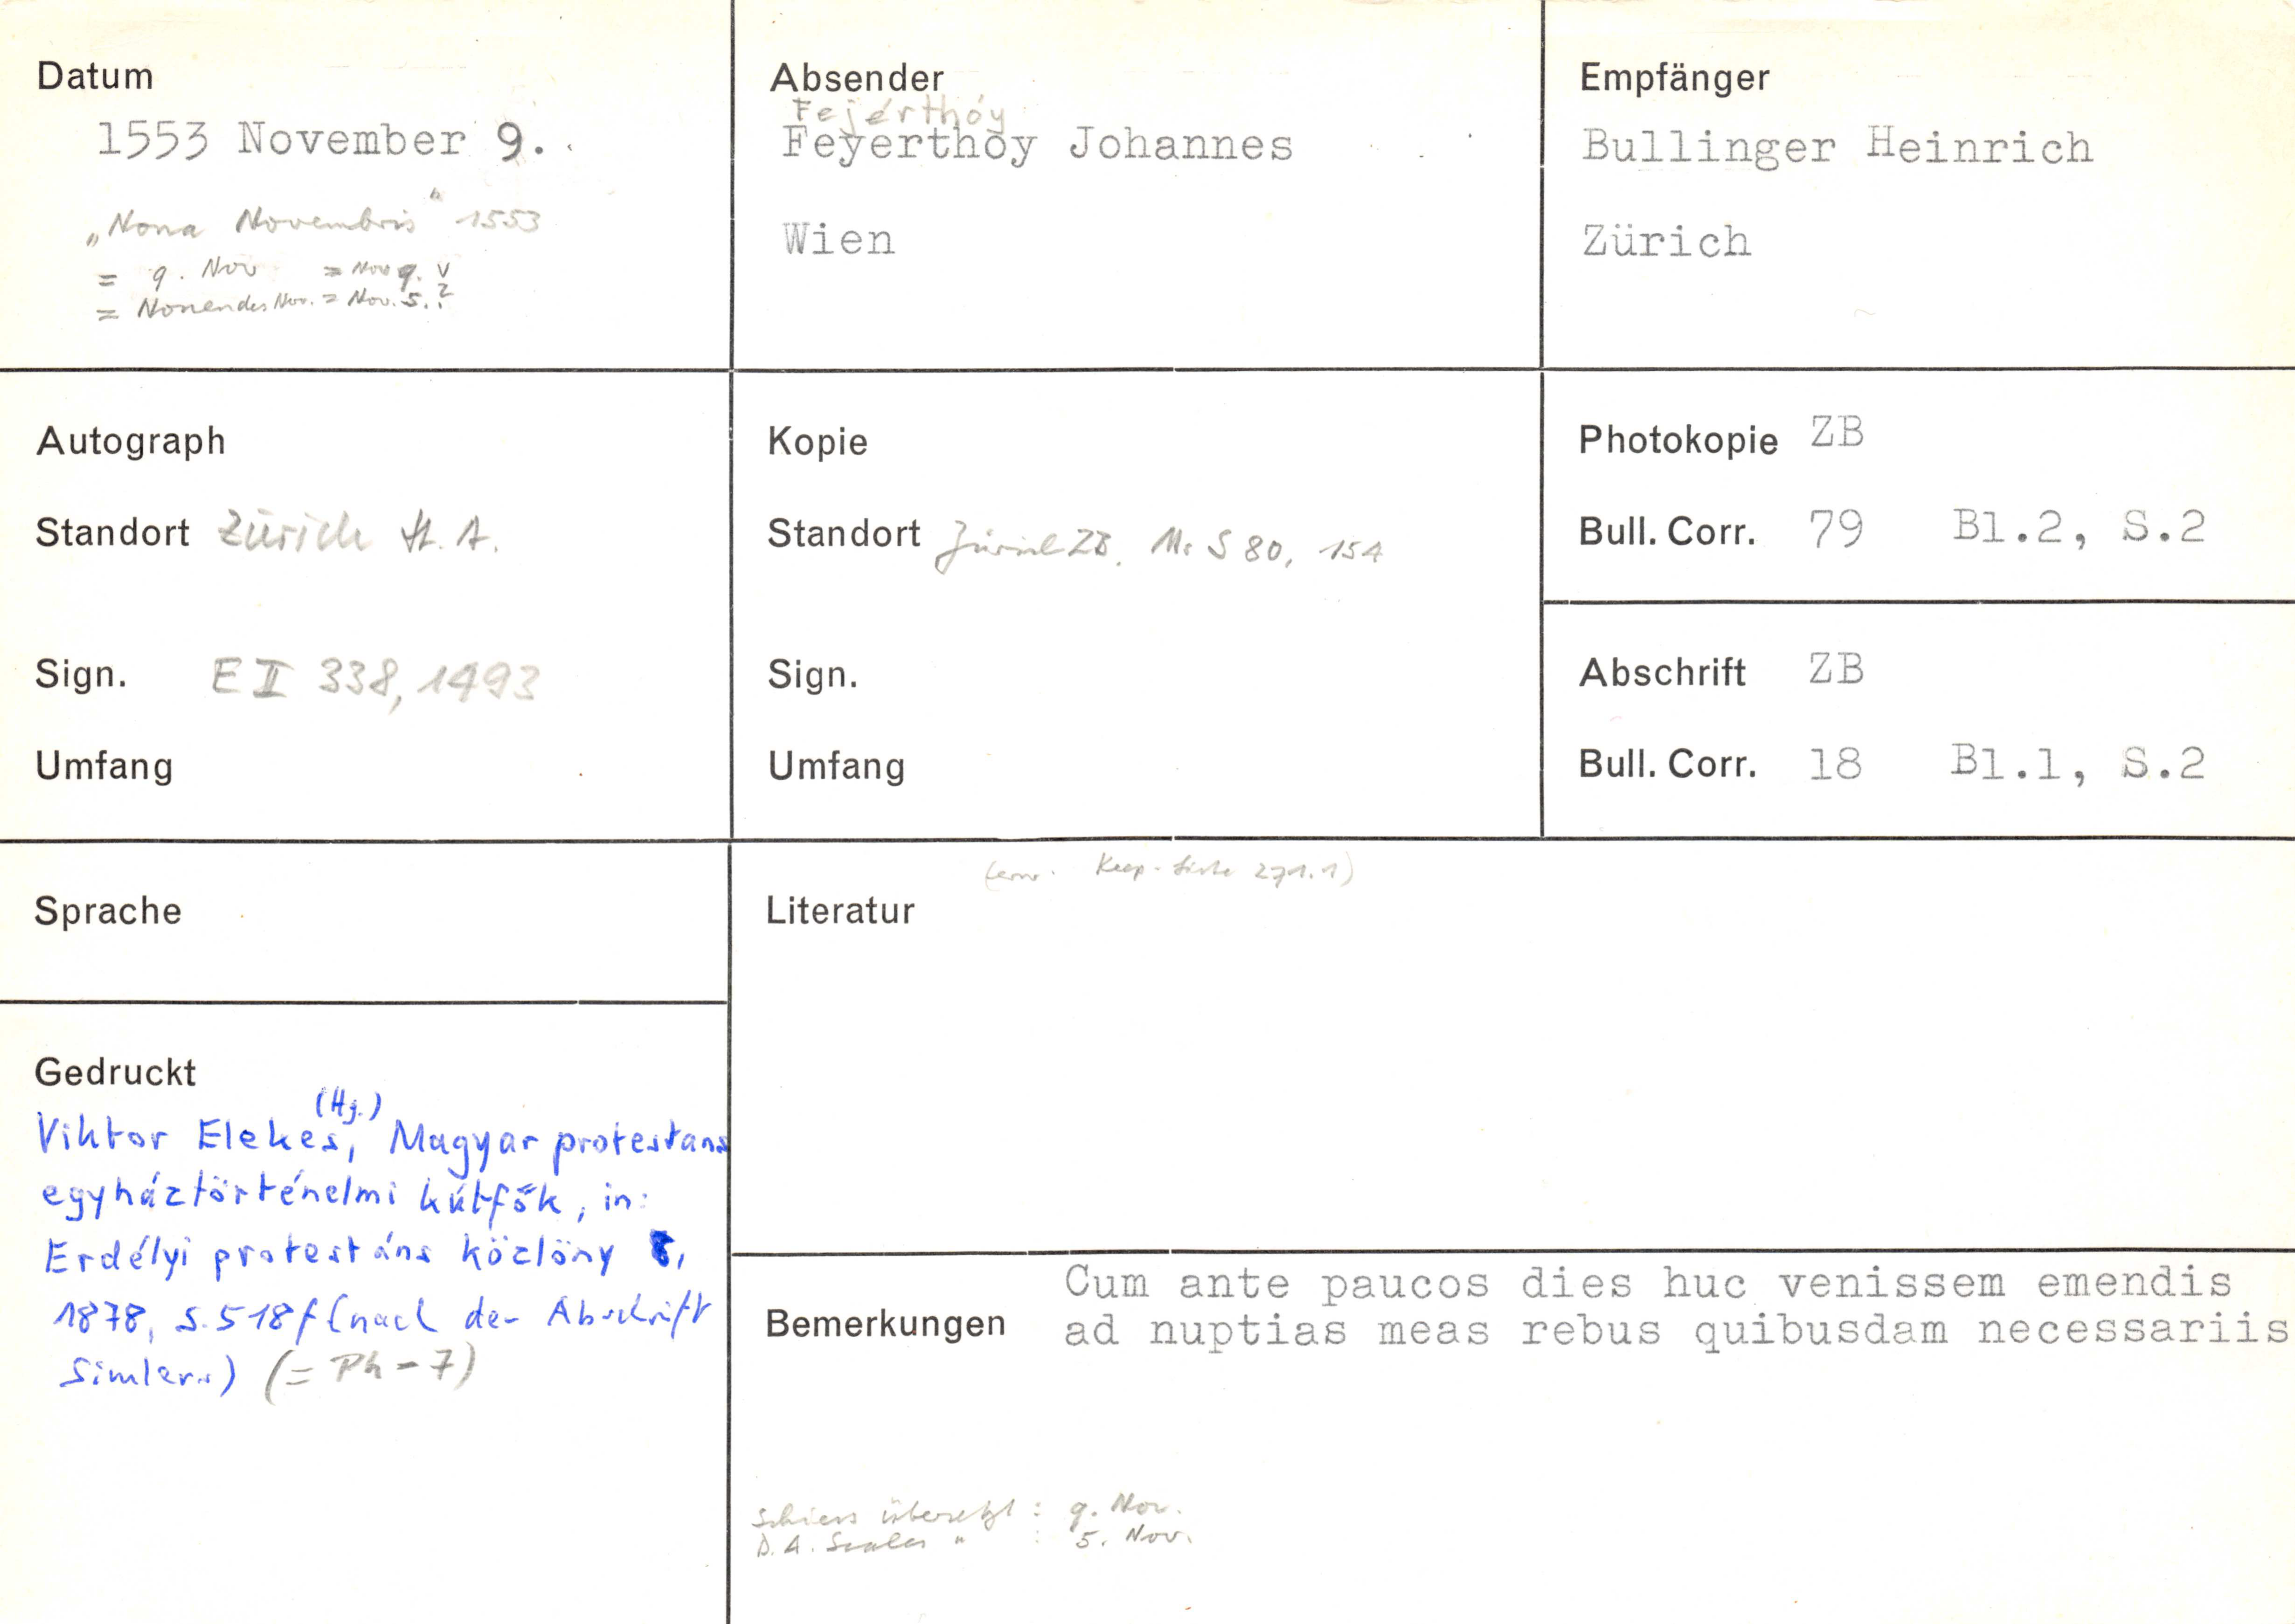 Datum
1553 November 9.
„Nona Novembris" 1553
= 9. Nov = Nov 9. v
= Nonen des Nov. = Nov. 5. ?
Absender
Fejérthóy
Feyerthóy Johannes
Wien
Empfänger
Bullinger Heinrich
Zürich
Autograph
Standort Zürich St. A.
Sign. E II 338, 1493
Umfang
Kopie
Standort Zürich ZB, Ms S 80, 154
Sign.
Umfang
Photokopie ZB
Bull. Corr. 79 Bl.2, S.2
Abschrift ZB
Bull. Corr. 18 Bl.1, S.2
Sprache
Gedruckt
(Hg.)
Viktor Elekes, Magyar protestans
egyháztörténelmi kútfők, in:
Erdélyi protestáns közlöny 8,
1878, S. 518f (nach der Abschrift
Simlers) (= Ph - 7)
(erw. 271.1)
Literatur
Bemerkungen Cum ante paucos dies huc venissem emendis
ad nuptias meas rebus quibusdam necessariis
Schiess übersetzt : 9. Nov.
D. A. " : 5. Nov.